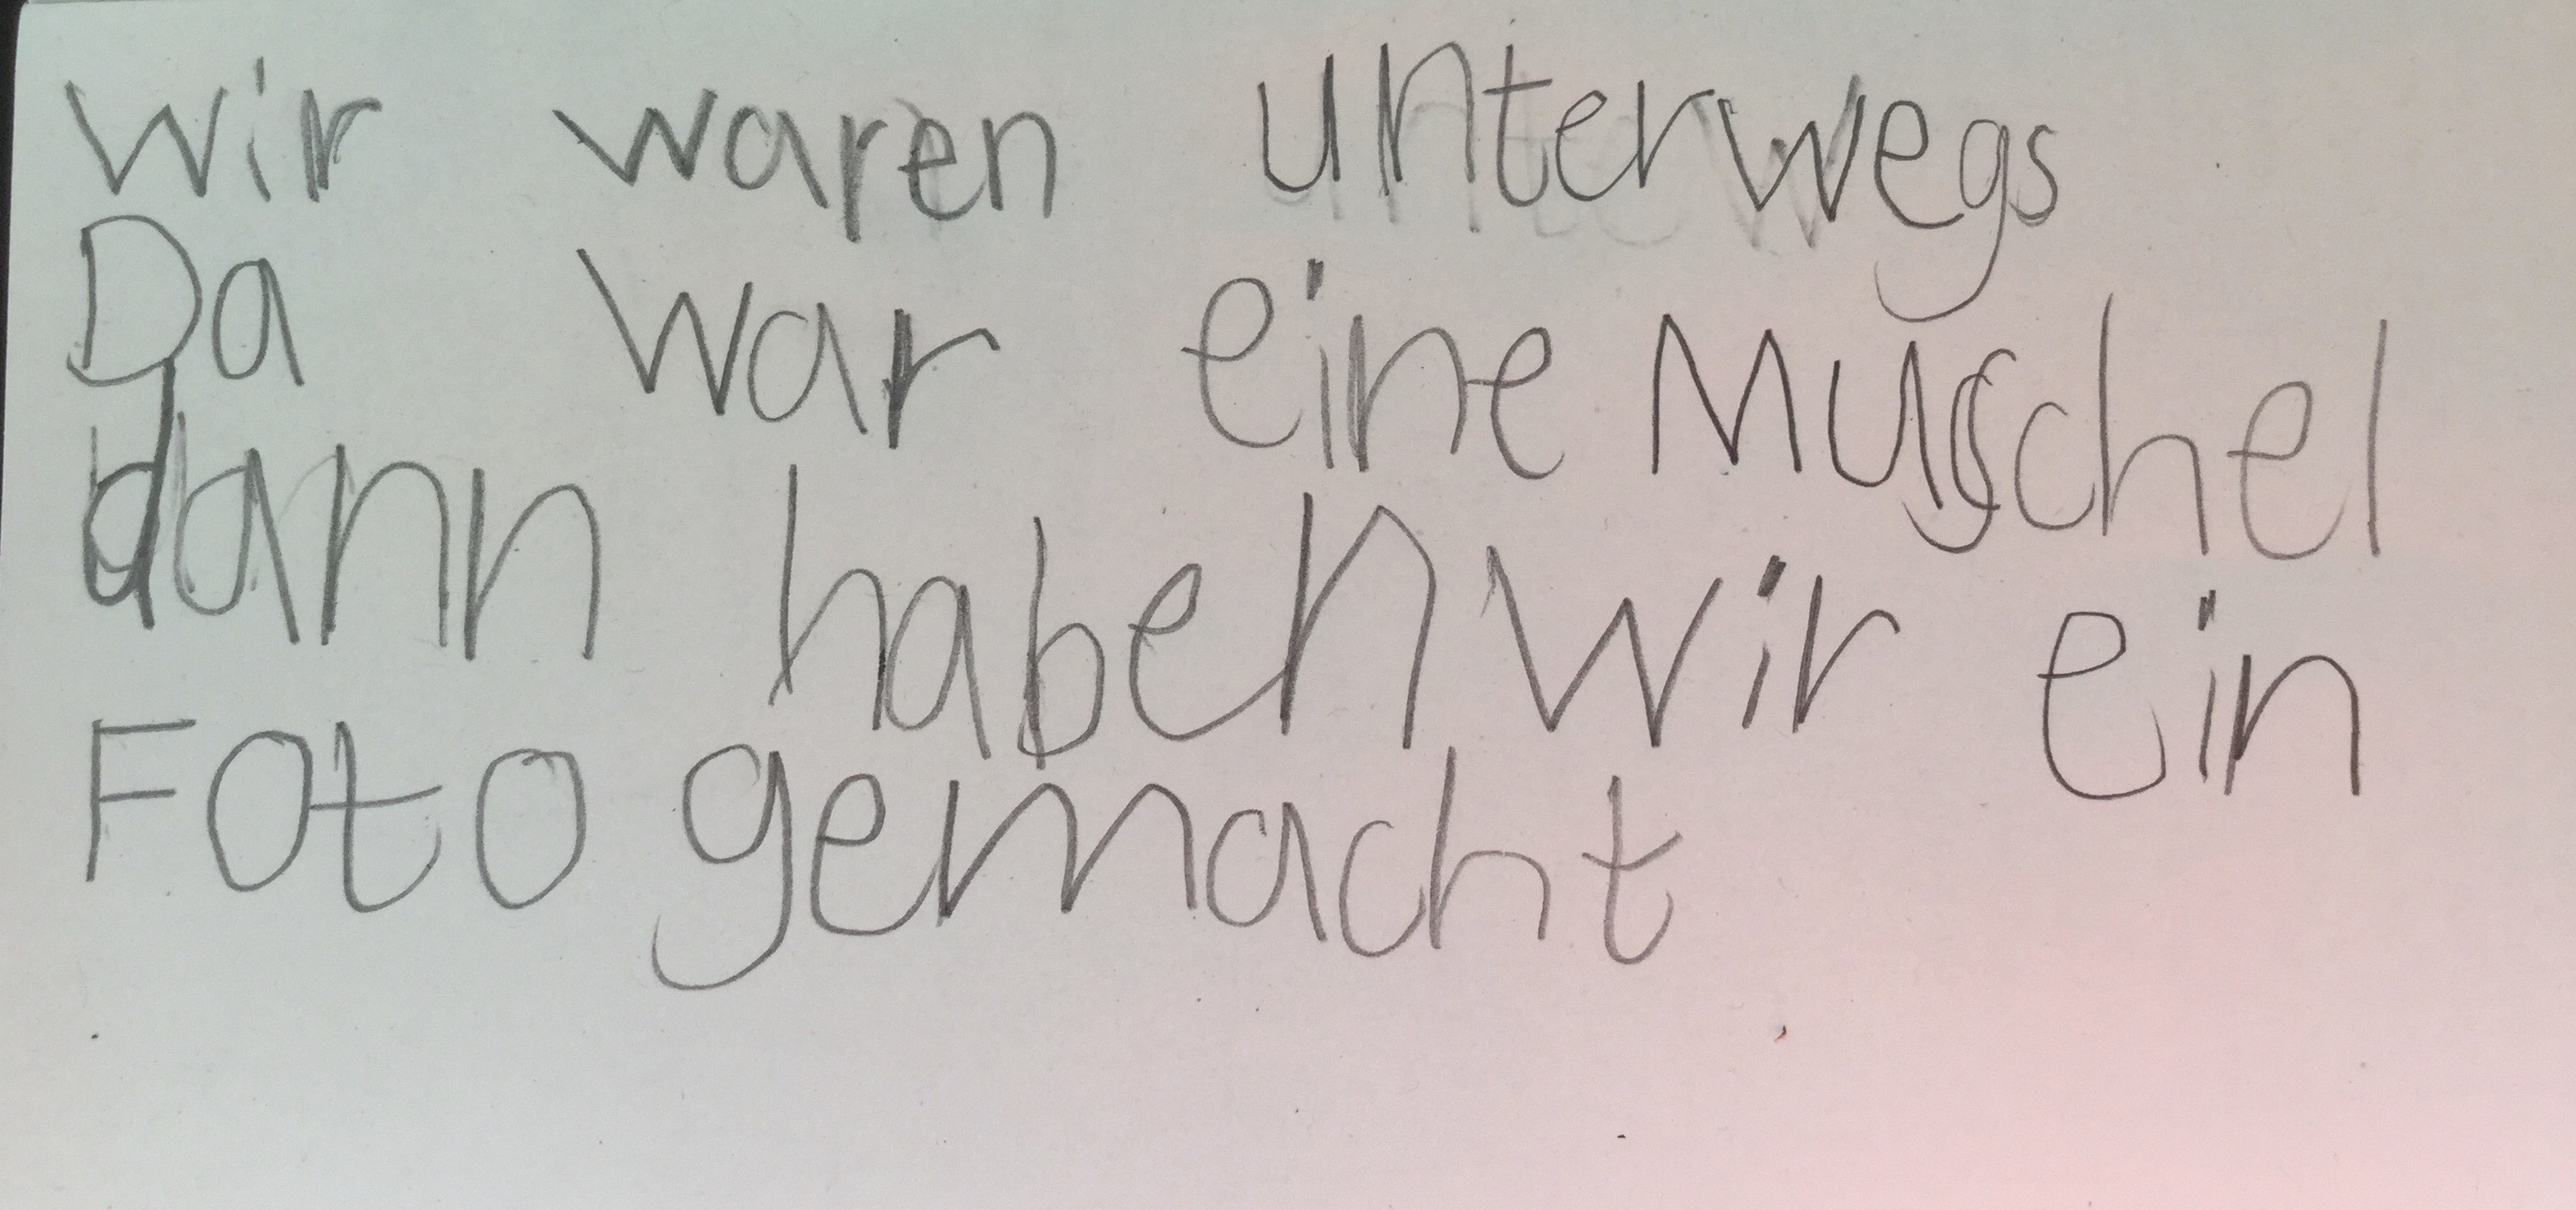 wir waren unterwegs
Da war eine Muschel
dann haben wir ein
Foto gemacht